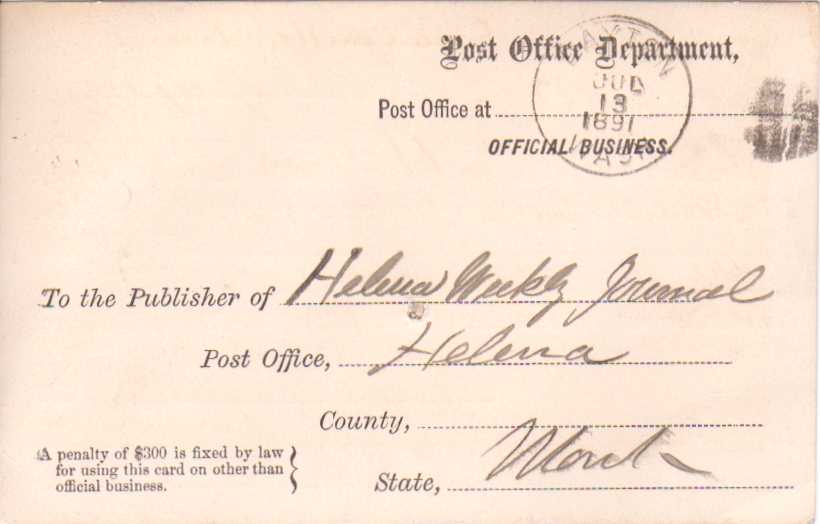 Post Office Department,
Post Office at
DAYTON
JUL
13
1891
WASH
OFFICIAL BUSINESS.
To the Publisher of Helena Weekly Journal
Post Office, Helena
County,
State, Mont
A penalty of $300 is fixed by law
for using this card on other than
official business.